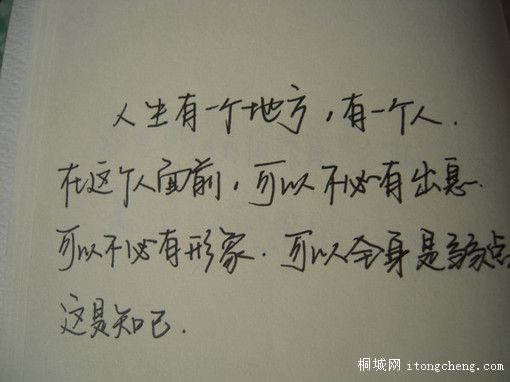 人生有一个地方，有一个人.
在这个人面前，可以不必有出息.
可以不必有形象.可以全身是弱点
这是知己.
桐城网 itongcheng.com